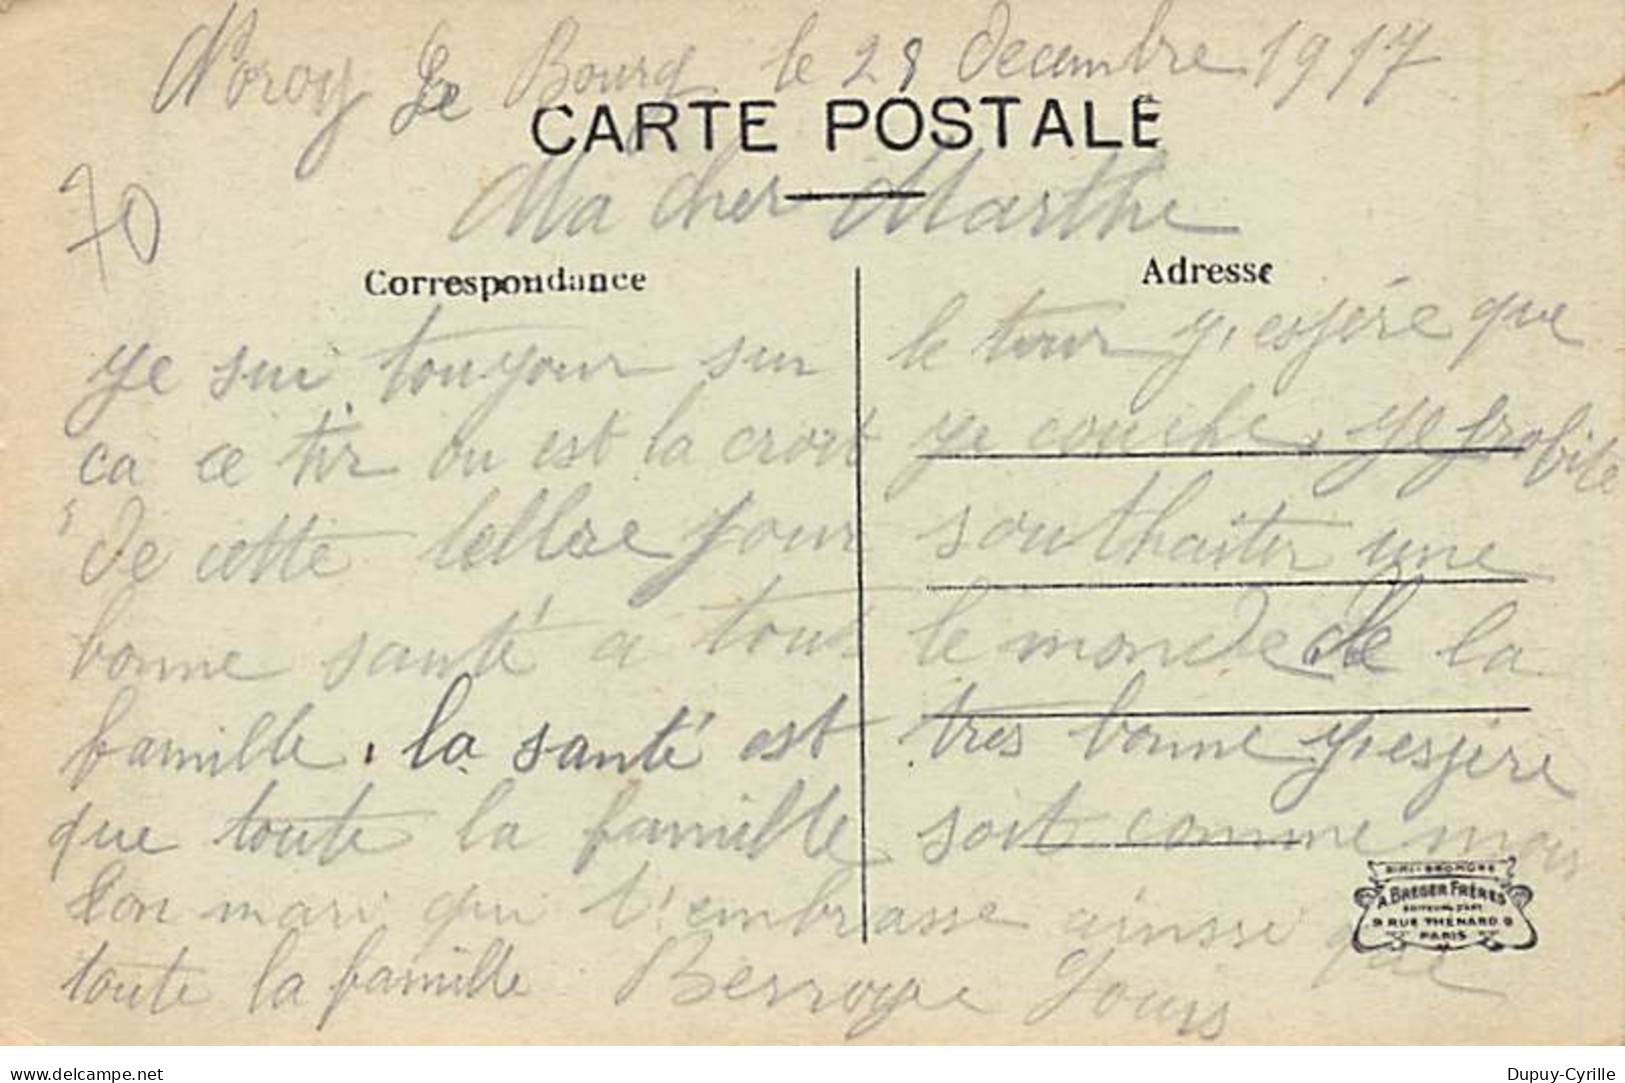 Noroy Le Bourg le 28 decembre 1917
CARTE POSTALE
70
Ma cher Marthe
Correspondance
Adresse
Je sui toujour sur le tour j'espére que
ca ce tir ou est la croit je couche. Je profite
de cette lettre pour southaiter une
bonne santé a tous le monde de la
famille. la santé est tres bonne j'espére
que toute la famille soit comme moi
ton mari qui t'embrasse ainsse que
toute la famille Berroye Louis
A. BREGER FRÈRES
9 RUE THENARD 9
PARIS
www.delcampe.net
Dupuy-Cyrille